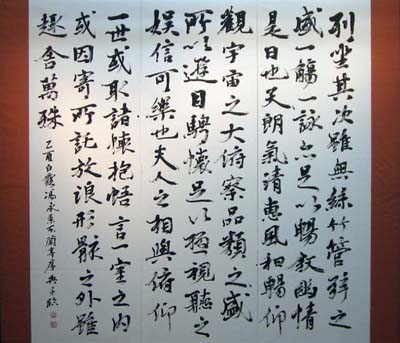 列坐其次雖無絲竹管弦之
盛一觴一詠亦足以暢敘幽情
是日也天朗氣清惠風和暢仰
觀宇宙之大俯察品類之盛
所以遊目騁懷足以極視聽之
娛信可樂也夫人之相與俯仰
一世或取諸懷抱悟言一室之內
或因寄所託放浪形骸之外雖
趣舍萬殊
乙酉白露馮永 蘭亭序